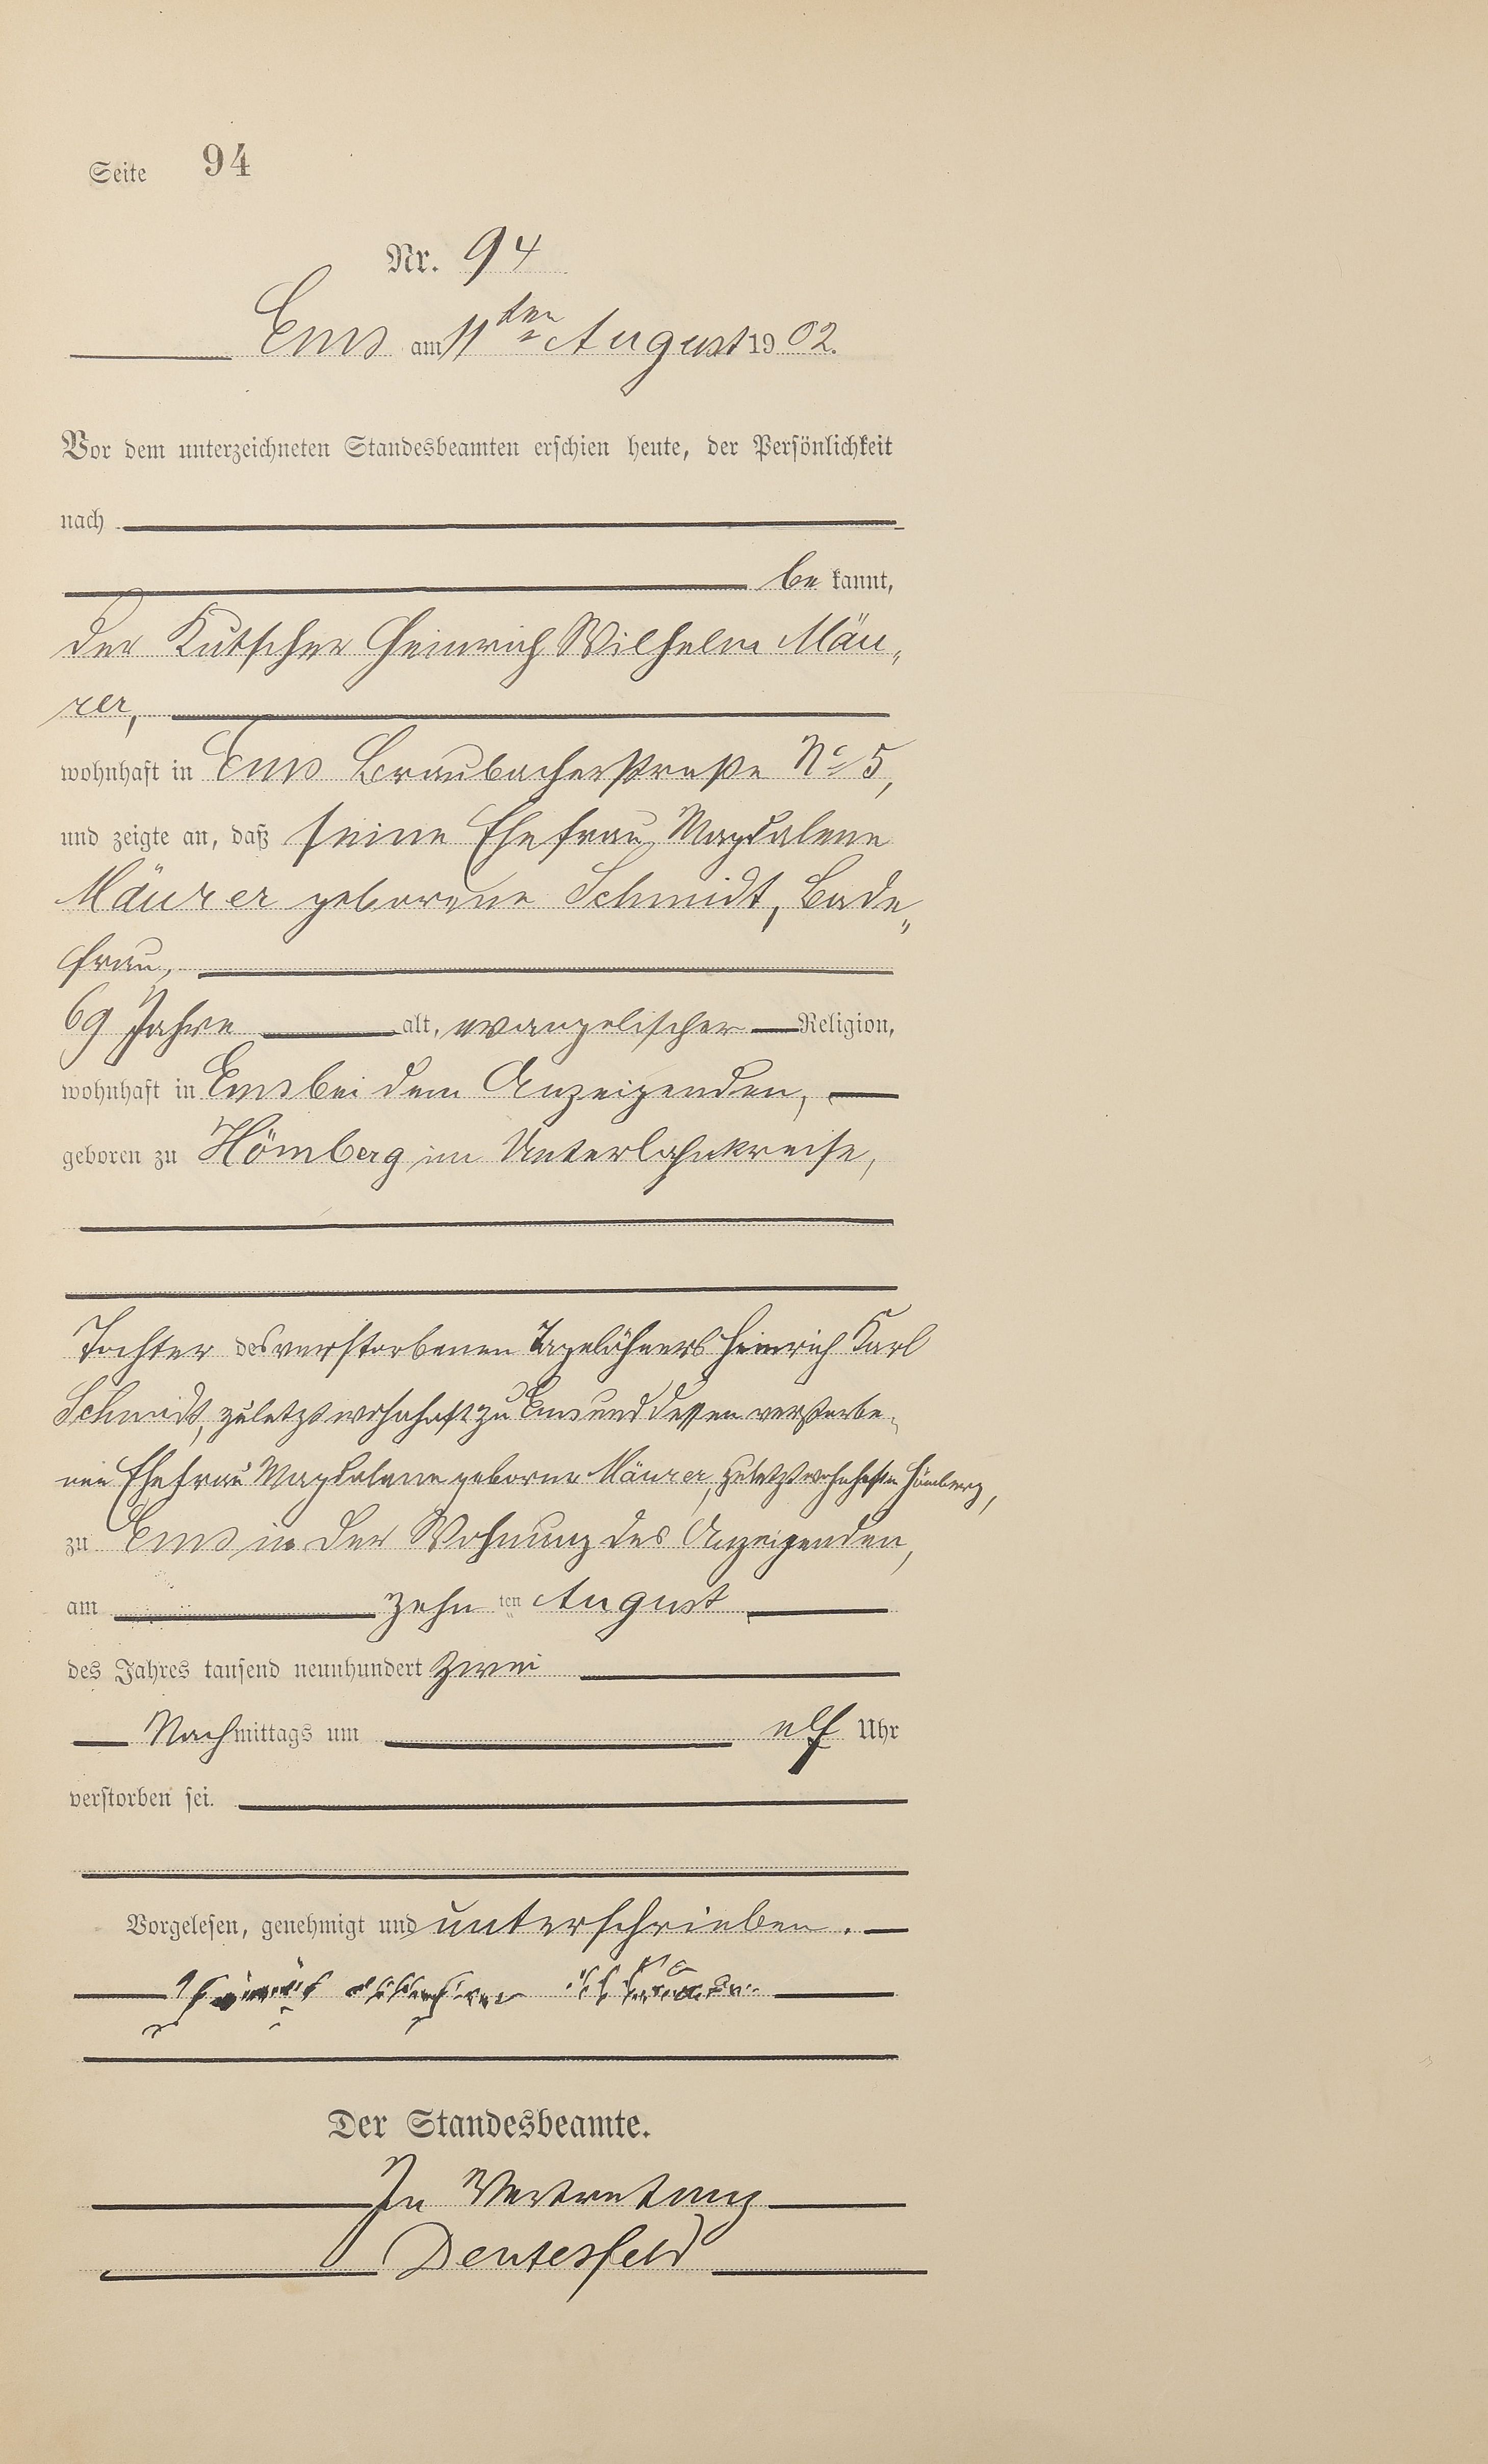 Seite 94
Nr. 94
Ems am 11ten August 1902.
Vor dem unterzeichneten Standesbeamten erschien heute, der Persönlichkeit
nach
bekannt,
der Kutscher Heinrich Wilhelm Mäu„
rer,
wohnhaft in Ems Braubacherstraße No 5,
und zeigte an, daß seine Ehefrau Magdalene
Mäurer geborene Schmidt, Bade„
frau,
69 Jahre alt, evangelischer Religion,
wohnhaft in Ems bei dem Anzeigenden,
geboren zu Hömberg im Unterlahnkreise,
Tochter des verstorbenen Tagelöhners Heinrich Karl
Schmidt, zuletzt wohnhaft zu Ems und dessen verstorbe„
nen Ehefrau Magdalene geborne Mäurer, zuletzt wohnhaft in Hömberg,
zu Ems in der Wohnung des Anzeigenden,
am zehnten August
des Jahres tausend neunhundert zwei
Nachmittags um elf Uhr
verstorben sei.
Vorgelesen, genehmigt und unterschrieben.
Der Standesbeamte.
In Vertretung
Deutesfeld